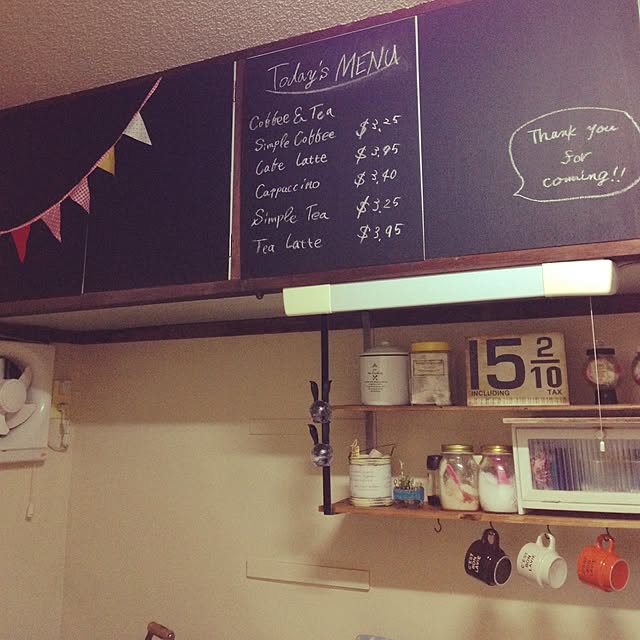 Today's MENU
Coffee & Tea
Simple Coffee $3.25
Cafe Latte $3.95
Cappuccino $3.40
Simple Tea $3.25
Tea Latte $3.95
Thank you
for
coming!!
15 2/10
INCLUDING TAX